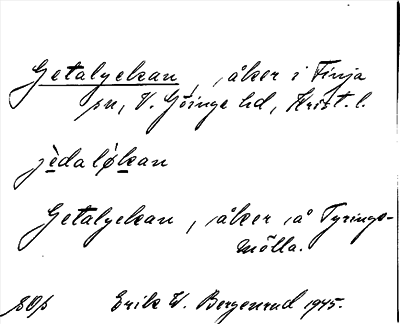 Getalyckan, åker i Finja
sn, V. Göinge hd, Krist. l.
jèdaløkan
Getalyckan, åker å Tyrings-
mölla.
Erik W. Bergenrud 1945.